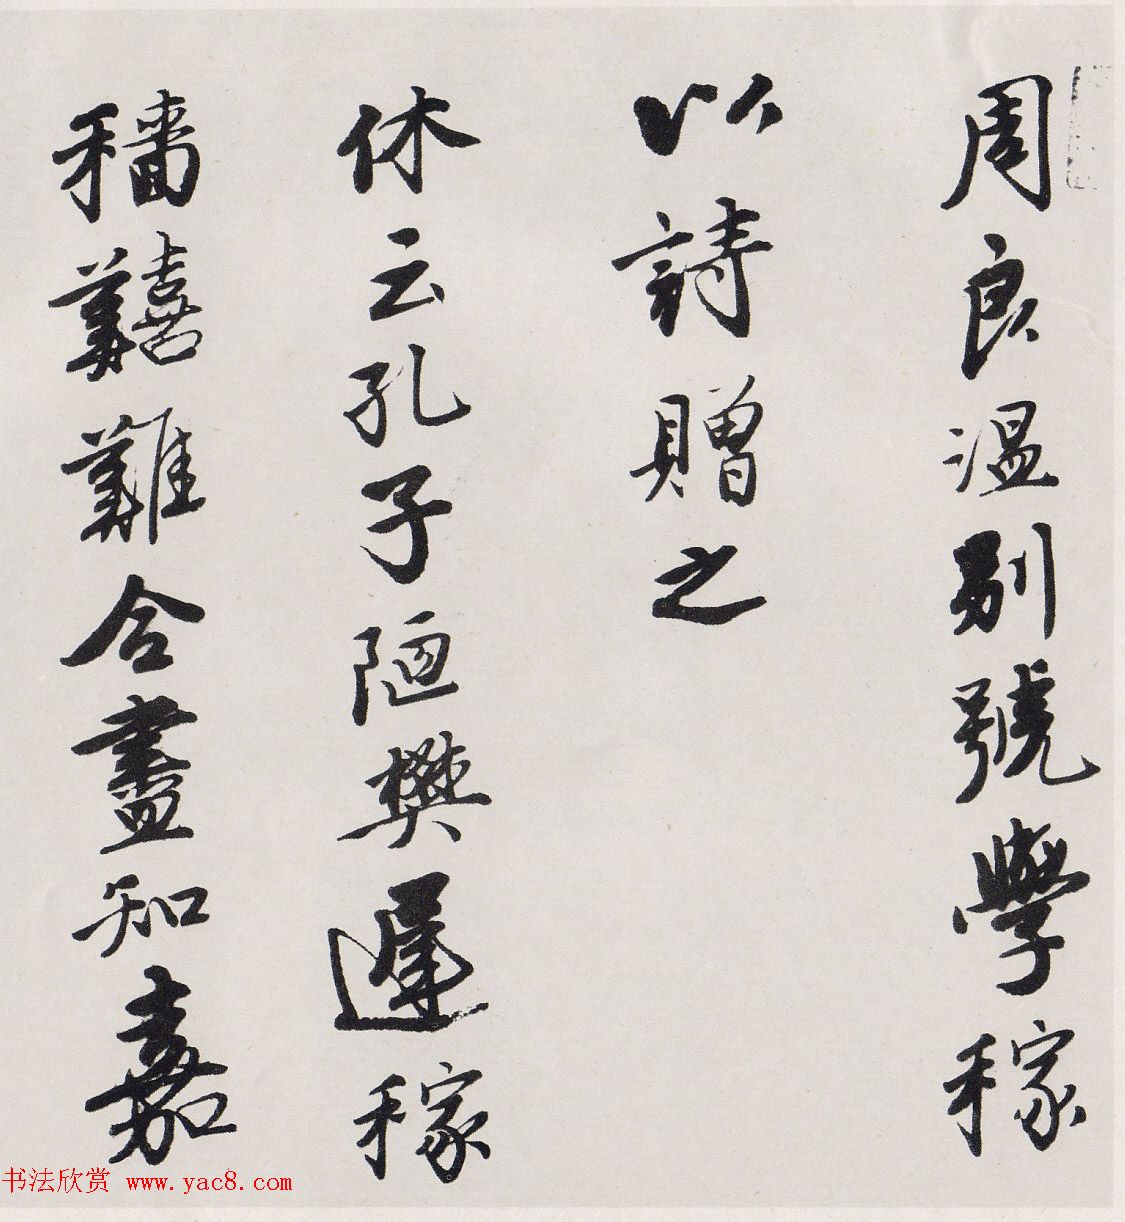 周良温別號學稼
以詩贈之
休云孔子陋樊遲稼
穡囏難合盡知嘉
书法欣赏 www.yac8.com